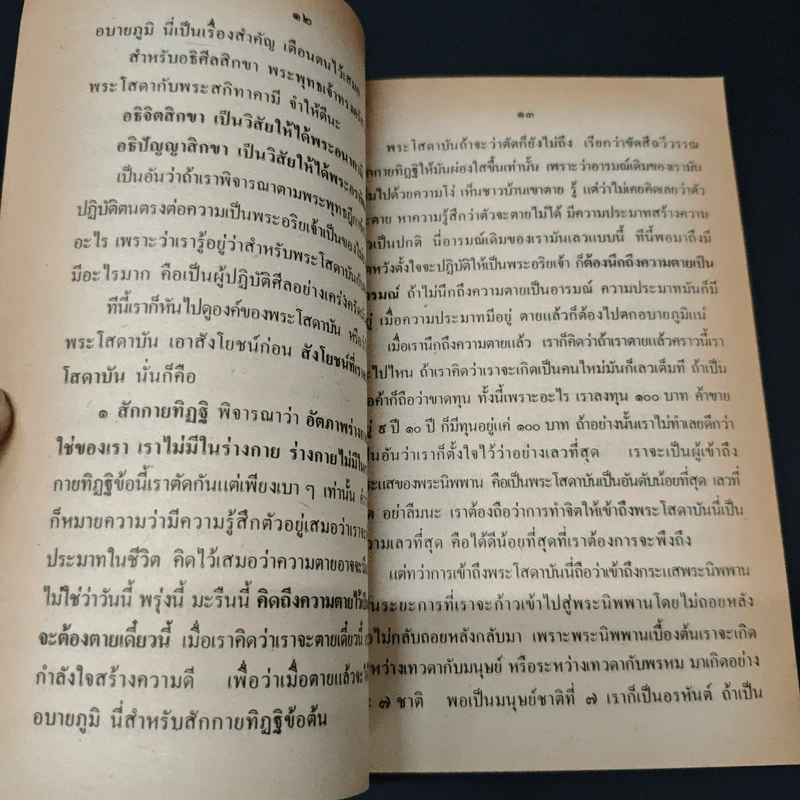 ๑๒
อบายภูมิ นี่เป็นเรื่องสำคัญ เตือนตนไว้เสมอ
สำหรับอธิศีลสิกขา พระพุทธเจ้าทรง
พระโสดากับพระสกิทาคามี จำให้ดีนะ
อธิจิตสิกขา เป็นวิสัยให้ได้พระอนาคามี
อธิปัญญาสิกขา เป็นวิสัยให้ได้พระ
เป็นอันว่าถ้าเราพิจารณาตามพระพุทธฎีกา
ปฏิบัติตนตรงต่อความเป็นพระอริยเจ้าเป็นของ
อะไร เพราะว่าเรารู้อยู่ว่าสำหรับพระโสดาบัน
มีอะไรมาก คือเป็นผู้ปฏิบัติศีลอย่างเคร่งครัด
ทีนี้เราก็หันไปดูองค์ของพระโสดาบัน หรือ
พระโสดาบัน เอาสังโยชน์ก่อน สังโยชน์ที่
โสดาบัน นั่นก็คือ
๑ สักกายทิฏฐิ พิจารณาว่า อัตภาพร่าง
ใช่ของเรา เราไม่มีในร่างกาย ร่างกายไม่มีใน
กายทิฏฐิข้อนี้เราตัดกันแต่เพียงเบา ๆ เท่านั้น
ก็หมายความว่ามีความรู้สึกตัวอยู่เสมอว่าเรา
ประมาทในชีวิต คิดไว้เสมอว่าความตายอาจจะ
ไม่ใช่ว่าวันนี้ พรุ่งนี้ มะรืนนี้ คิดถึงความตายไว้
จะต้องตายเดี๋ยวนี้ เมื่อเราคิดว่าเราจะตายเดี๋ยวนี้
กำลังใจสร้างความดี เพื่อว่าเมื่อตายแล้วจะ
อบายภูมิ นี่สำหรับสักกายทิฏฐิข้อต้น
๑๓
พระโสดาบันถ้าจะว่าตัดก็ยังไม่ถึง เรียกว่าขัดสีฉวีวรรณ
กกายทิฏฐิให้มันผ่องใสขึ้นเท่านั้น เพราะว่าอารมณ์เดิมของเรามัน
มไปด้วยความโง่ เห็นชาวบ้านเขาตาย รู้ แต่ว่าไม่เคยคิดเลยว่าตัว
ะตาย หาความรู้สึกว่าตัวจะตายไม่ได้ มีความประมาทสร้างความ
วเป็นปกติ นี่อารมณ์เดิมของเรามันเลวแบบนี้ ทีนี้พอมาถึงมี
หวังตั้งใจจะปฏิบัติให้เป็นพระอริยเจ้า ก็ต้องนึกถึงความตายเป็น
อารมณ์ ถ้าไม่นึกถึงความตายเป็นอารมณ์ ความประมาทมันก็มี
ยู่ เมื่อความประมาทมีอยู่ ตายแล้วก็ต้องไปตกอบายภูมิแน่
เมื่อเรานึกถึงความตายแล้ว เราก็คิดว่าถ้าเราตายแล้วคราวนี้เรา
ะไปไหน ถ้าเราคิดว่าเราจะเกิดเป็นคนใหม่มันก็เลวเต็มที ถ้าเป็น
อค้าก็ถือว่าขาดทุน ทั้งนี้เพราะอะไร เราลงทุน ๑๐๐ บาท ค้าขาย
ยู่ ๙ ปี ๑๐ ปี ก็มีทุนอยู่แค่ ๑๐๐ บาท ถ้าอย่างนั้นเราไม่ทำเลยดีกว่า
ป็นอันว่าเราก็ตั้งใจไว้ว่าอย่างเลวที่สุด เราจะเป็นผู้เข้าถึง
ะแสของพระนิพพาน คือเป็นพระโสดาบันเป็นอันดับน้อยที่สุด เลวที่
ด อย่าลืมนะ เราต้องถือว่าการทำจิตให้เข้าถึงพระโสดาบันนี่เป็น
วามเลวที่สุด คือได้ดีน้อยที่สุดที่เราต้องการจะพึงถึง
แต่ทว่าการเข้าถึงพระโสดาบันนี่ถือว่าเข้าถึงกระแสพระนิพพาน
นระยะการที่เราจะก้าวเข้าไปสู่พระนิพพานโดยไม่ถอยหลัง
วไม่กลับถอยหลังกลับมา เพราะพระนิพพานเบื้องต้นเราจะเกิด
หว่างเทวดากับมนุษย์ หรือระหว่างเทวดากับพรหม มาเกิดอย่าง
ะ ๗ ชาติ พอเป็นมนุษย์ชาติที่ ๗ เราก็เป็นอรหันต์ ถ้าเป็น